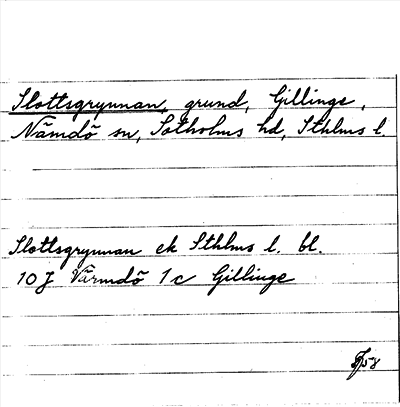 Slottsgrynnan, grund, Gillinge,
Nämdö sn, Sotholms hd, Sthlms l.
Slottsgrynnan ek Sthlms l. bl.
10J Värmdö 1c Gillinge